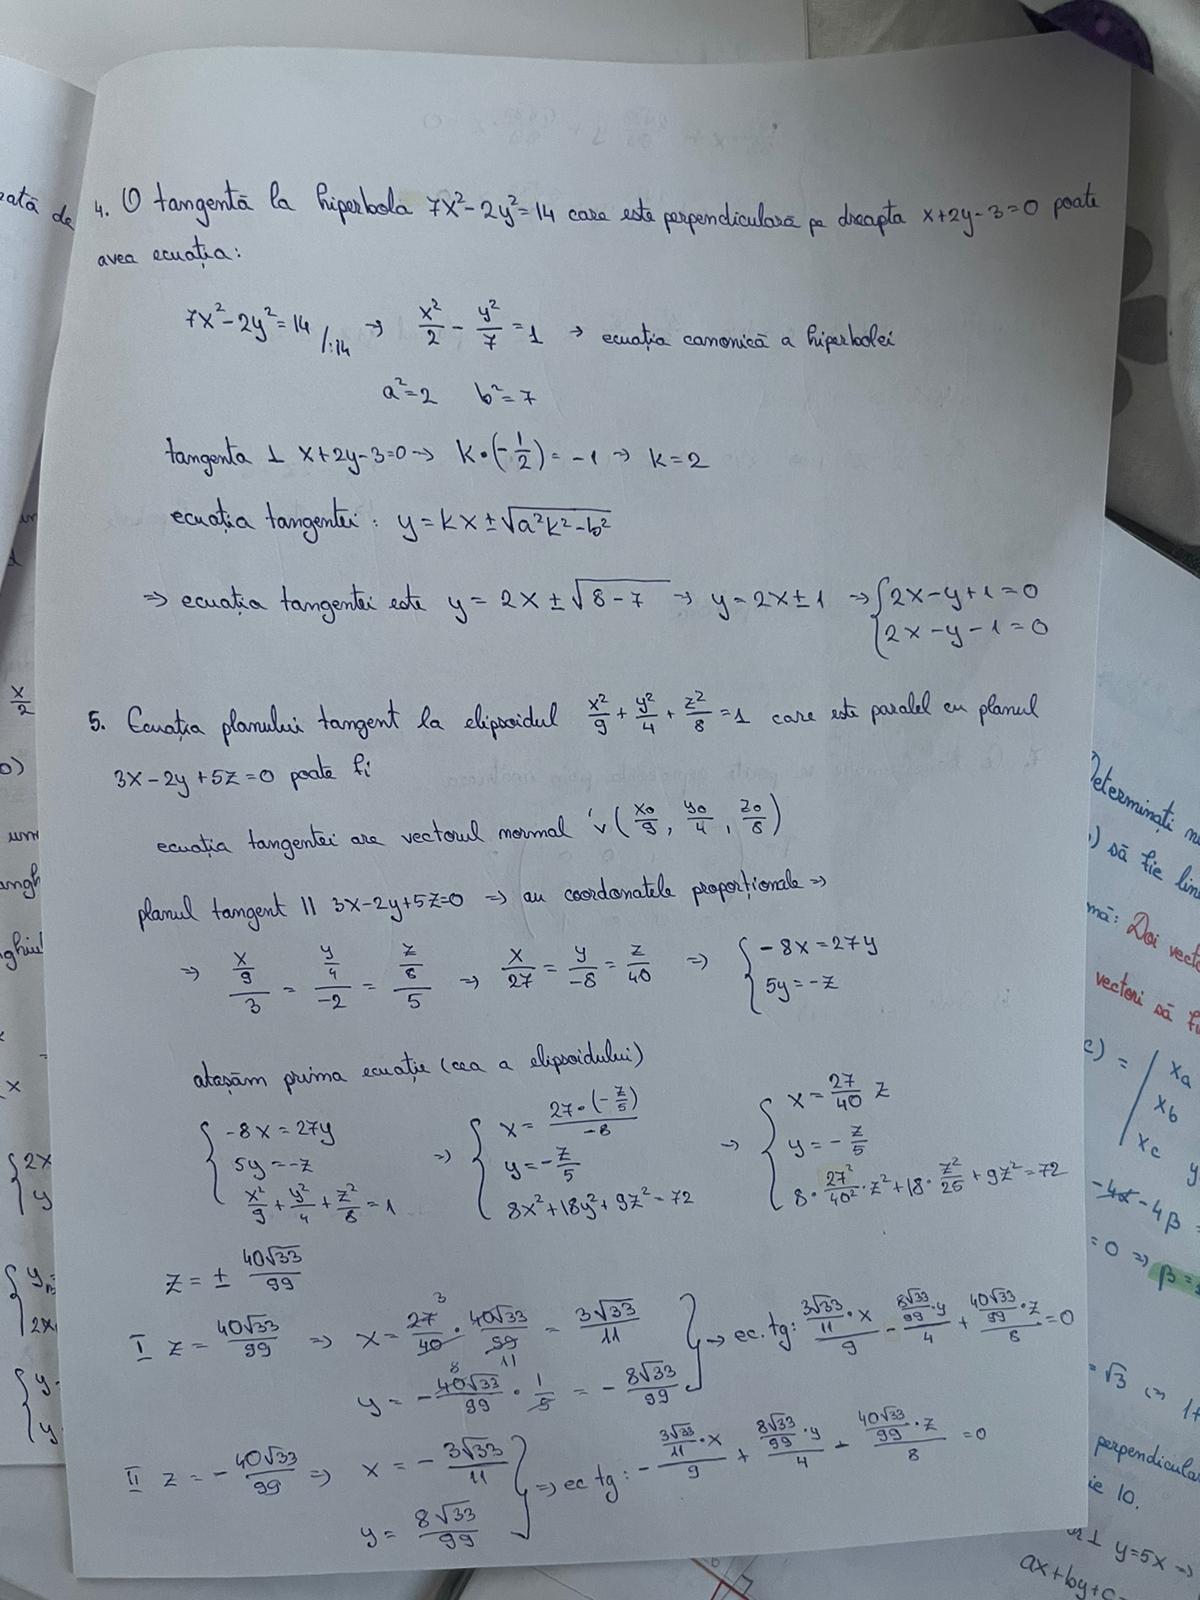 4. O tangentă la hiperbola 7x²-2y²=14 care este perpendiculară pe dreapta x+2y-3=0 poate
avea ecuația:
7x²-2y²=14 /:14 → x²/2 - y²/7 = 1 → ecuația canonică a hiperbolei
a²=2 b²=7
tangenta ⊥ x+2y-3=0 → k·(-1/2) = -1 → k=2
ecuația tangentei: y = kx ± √(a²k²-b²)
⇒ ecuația tangentei este y = 2x ± √(8-7) → y = 2x ± 1 ⇒ { 2x-y+1=0
2x-y-1=0
5. Ecuația planului tangent la elipsoidul x²/9 + y²/4 + z²/8 = 1 care este paralel cu planul
3x-2y+5z=0 poate fi
ecuația tangentei are vectorul normal v(x0/9, y0/4, z0/8)
planul tangent || 3x-2y+5z=0 ⇒ au coordonatele proporționale ⇒
⇒ (x/9)/3 = (y/4)/-2 = (z/8)/5 ⇒ x/27 = y/-8 = z/40 ⇒ { -8x=27y
5y=-z
atașăm prima ecuație (cea a elipsoidului)
{ -8x=27y ⇒ { x = 27·(-z/5)/-8 → { x = 27/40 z
5y=-z y = -z/5 y = -z/5
x²/9 + y²/4 + z²/8 = 1 8x²+18y²+9z²=72 8·27²/40²·z²+18·z²/25+9z²=72
z = ± 40√33/99
I z = 40√33/99 ⇒ x = 27/40 · 40√33/99 = 3√33/11 } → ec. tg: (3√33/11·x)/9 - (8√33/99·y)/4 + (40√33/99·z)/8 = 0
3 11
y = - 40√33/99 · 1/5 = - 8√33/99
8
II z = - 40√33/99 ⇒ x = - 3√33/11 } ⇒ ec tg: - (3√33/11·x)/9 + (8√33/99·y)/4 - (40√33/99·z)/8 = 0
y = 8√33/99
Determinați
să fie lin
mă: Doi vect
vectori să f
xa
xb
xc
-4α-4β
=0 ⇒ β=
=√3
perpendicular
ie 10.
⊥ y=5x →
ax+by+c
zată de
x/2
2x
y
2x